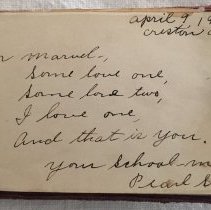 April 9, 19
Creston
r Marvel,
Some love one,
Some love two,
I love one,
And that is you.
Your School-ma
Pearl